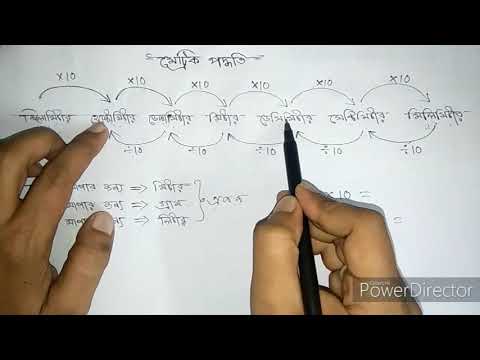 মেট্রিক পদ্ধতি
×10 ×10 ×10 ×10 ×10 ×10
কিলোমিটার হেক্টোমিটার ডেকামিটার মিটার ডেসিমিটার সেন্টিমিটার মিলিমিটার
÷10 ÷10 ÷10 ÷10 ÷10
মাপার জন্য => মিটার
মাপার জন্য => গ্রাম } একক ×10 =
মাপার জন্য => লিটার =
PowerDirector